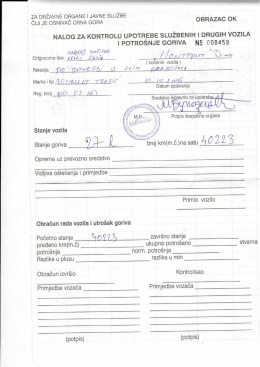 ZA DRŽAVNE ORGANE I JAVNE SLUŽBE
ČIJI JE OSNIVAČ CRNA GORA
OBRAZAC OK
NALOG ZA KONTROLU UPOTREBE SLUŽBENIH I DRUGIH VOZILA
I POTROŠNJE GORIVA № 000459
Odgovorno lice
( korisnik vozila )
Relacija PO POTREBI U SVIM PRAVCIMA
Marka i tip RENAULT TRAFIC
Datum izdavanja
Reg. broj
Sredstvo ispravno za upotrebu
M.P.
Potpis starješine organa
Stanje vozila
Stanje goriva 27 l broj(km.č.)na satu 40223
Oprema uz prevozno sredstvo
Vidljiva oštećenja i primjedbe
Primio vozilo
Obračun rada vozila i utrošak goriva
Početno stanje 40223 završno stanje
pređeno km(m.č) ukupno potrošeno stvarna
potrošnja norm. potrošnja
Razlika u plusu razlika u min
Obračun izvršio Kontrolisao
Primjedbe vozača Primjedbe vozača
(potpis) (potpis)